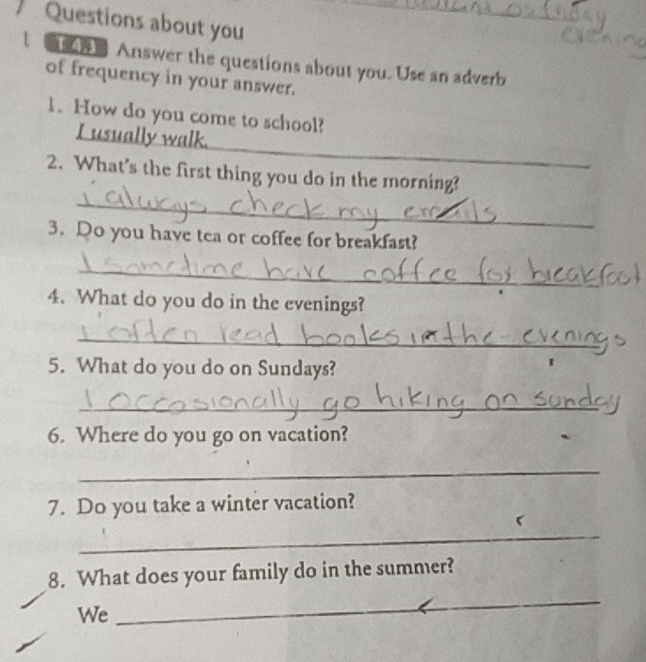 7 Questions about you
on sunday
evening
1 T 4.3 Answer the questions about you. Use an adverb
of frequency in your answer.
1. How do you come to school?
I usually walk.
2. What's the first thing you do in the morning?
i always check my emails
3. Do you have tea or coffee for breakfast?
I sometime have coffee for breakfast
4. What do you do in the evenings?
i often read books in the evenings
5. What do you do on Sundays?
I occasionally go hiking on sunday
6. Where do you go on vacation?
7. Do you take a winter vacation?
8. What does your family do in the summer?
We